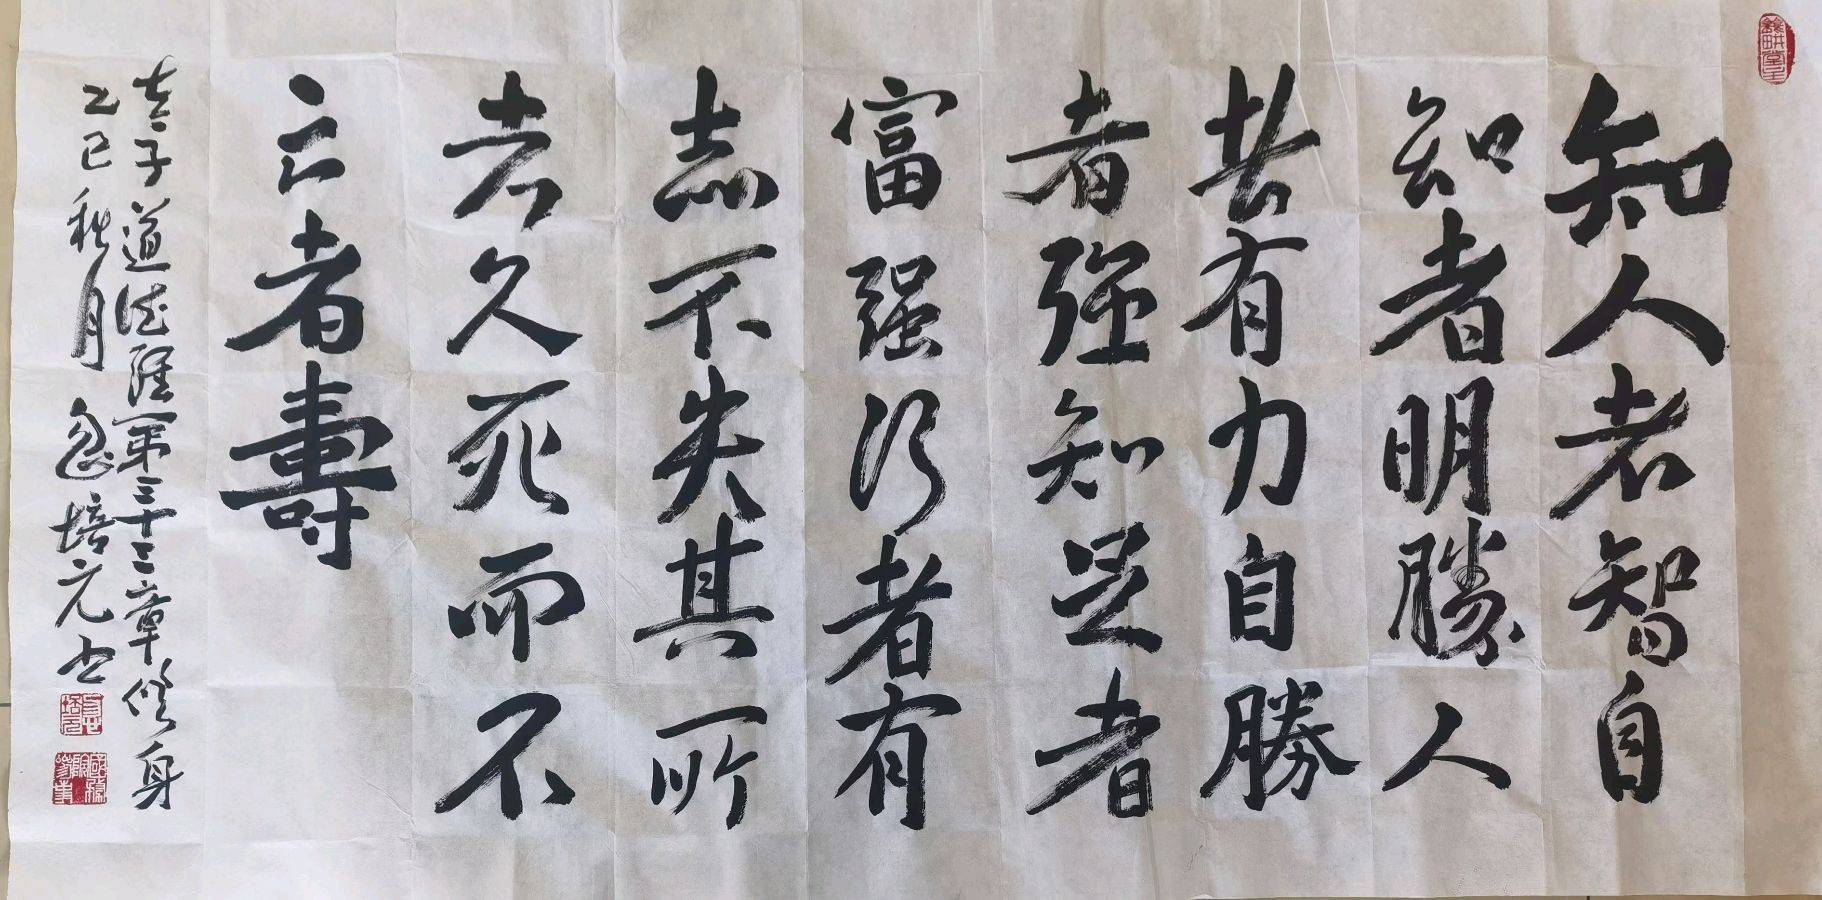 知人者智自
知者明勝人
者有力自勝
者強知足者
富强行者有
志不失其所
者久死而不
亡者壽
老子道德經第三十三章修身
乙巳秋月 培元书